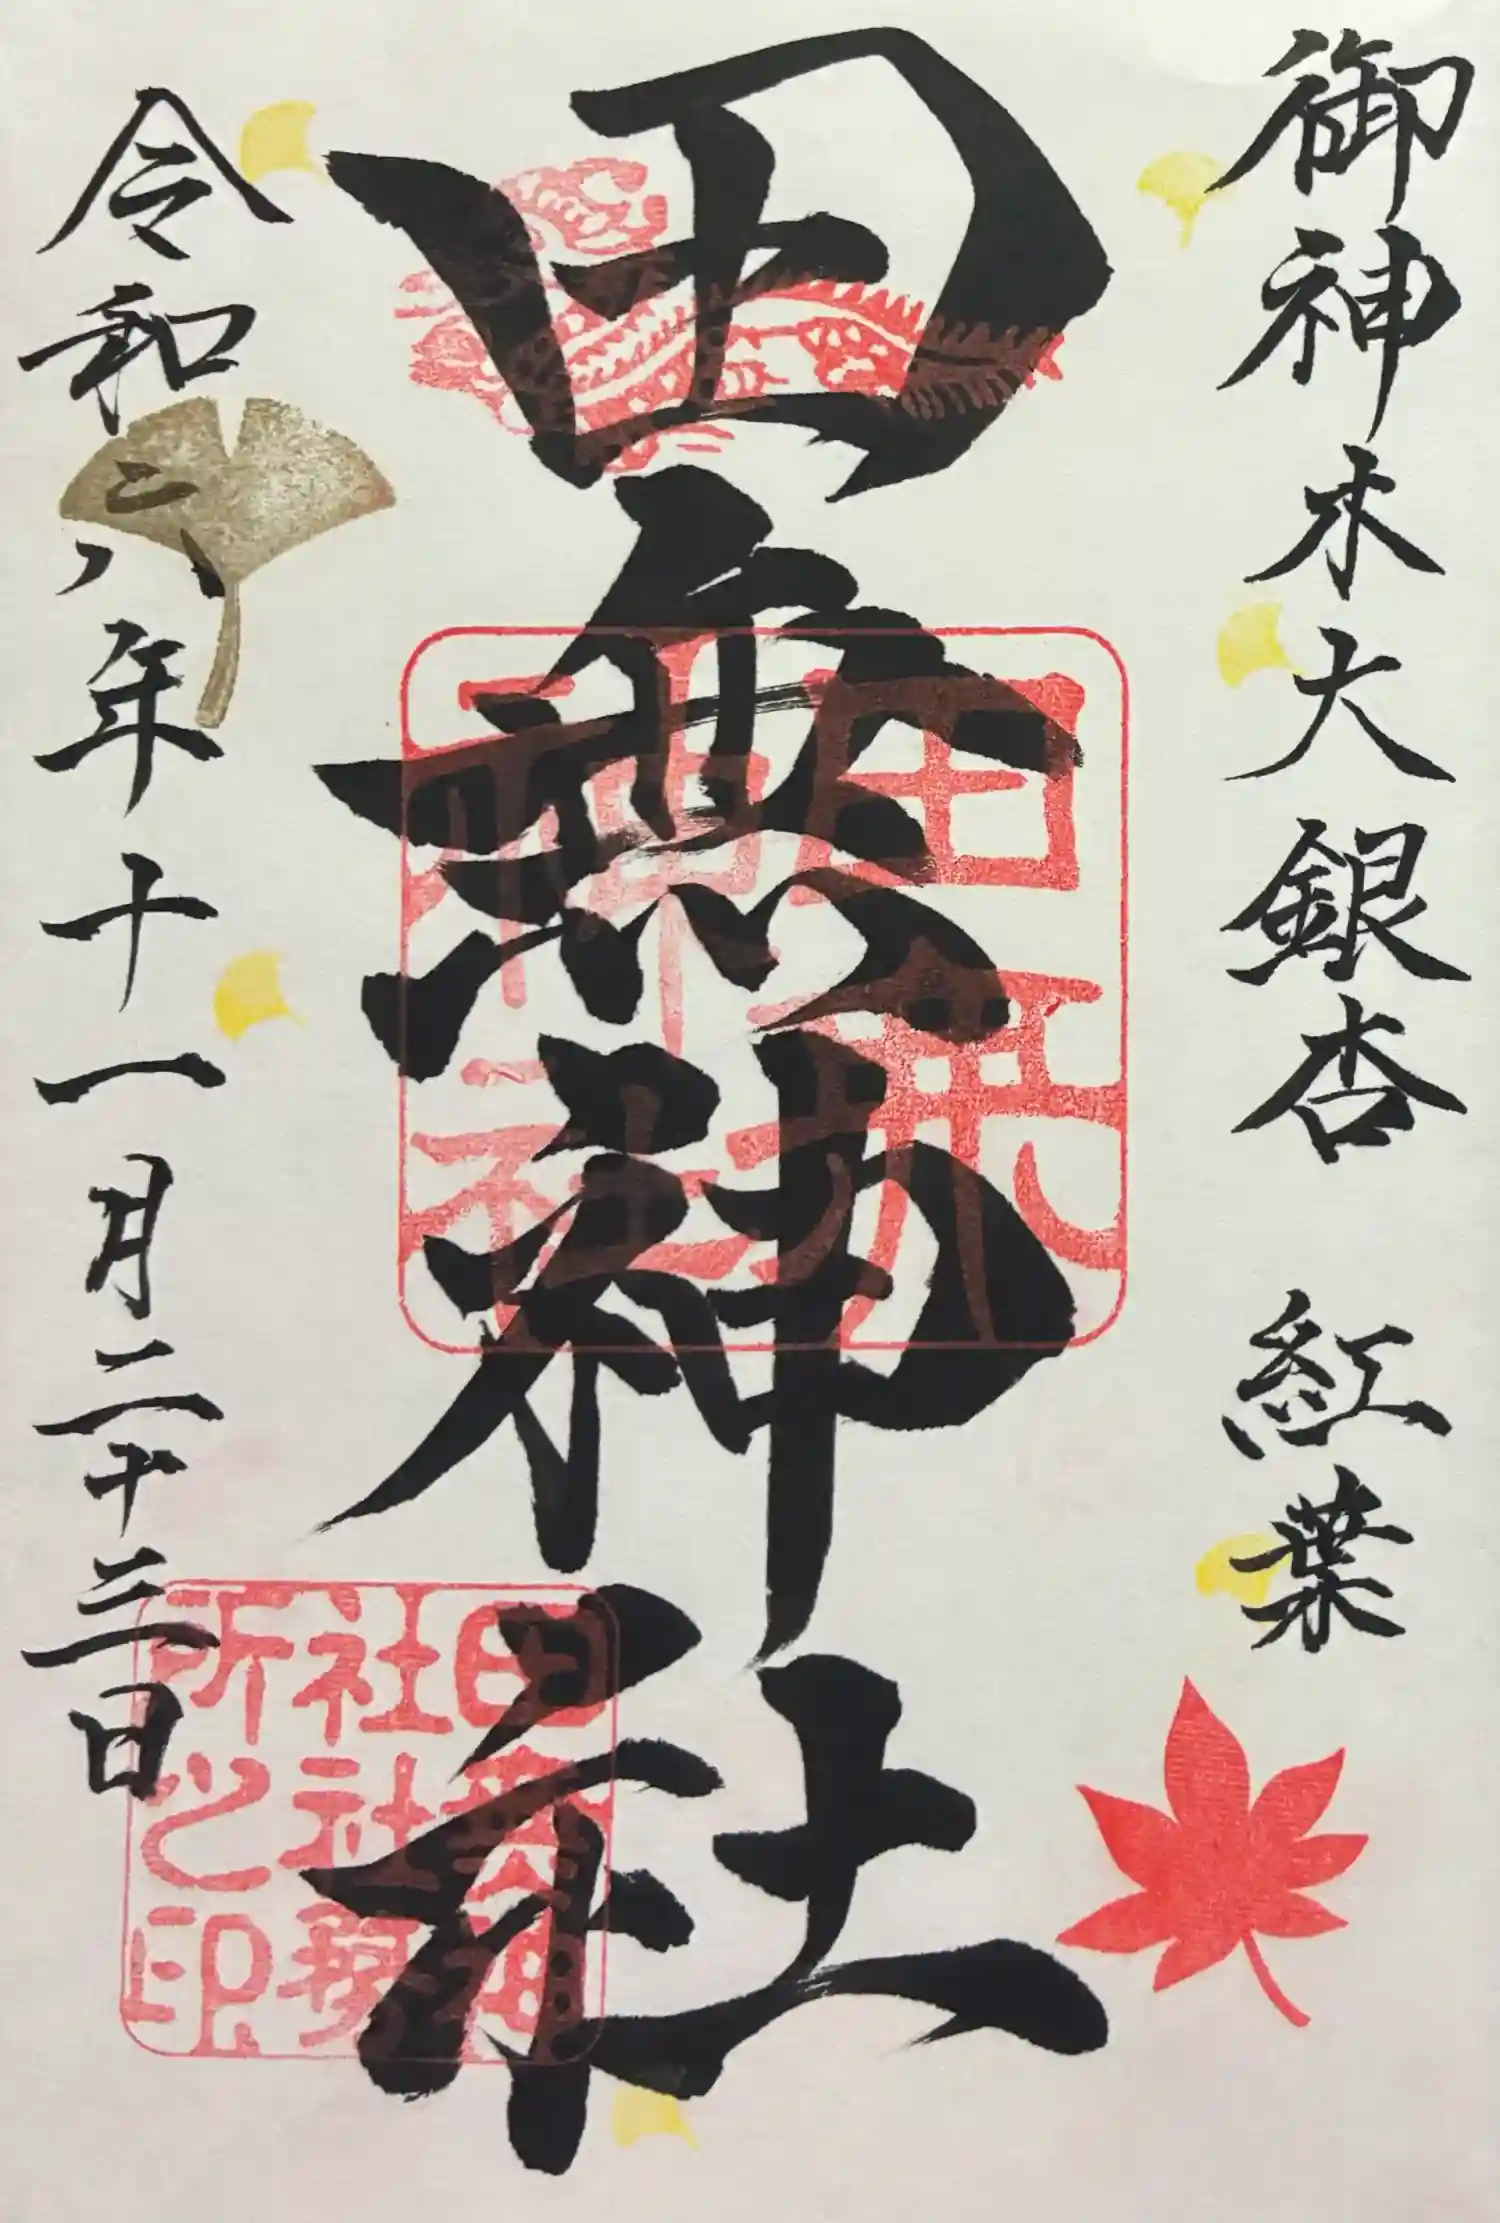 御神木大銀杏 紅葉
田無神社
令和六年十一月二十三日
田無
神社
田無神
社社務
所之印